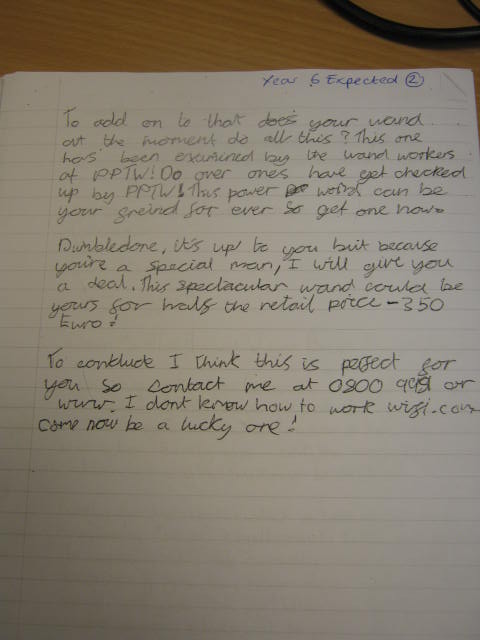 Year 6 Expected ②
To add on to that does your wand
at the moment do all this? This one
has been examined by the wand workers
at PPTW! Do over ones have get checked
up by PPTW! This power can be
your greind for ever so get one now.
Dumbledone, it's up to you but because
you're a special man, I will give you
a deal. This spectacular wand could be
yours for halfs the retail price - 350
Euro!
To conclude I think this is perfect for
you so contact me at 0800 or
www. I dont know how to work wifi.com
come now be a lucky one!